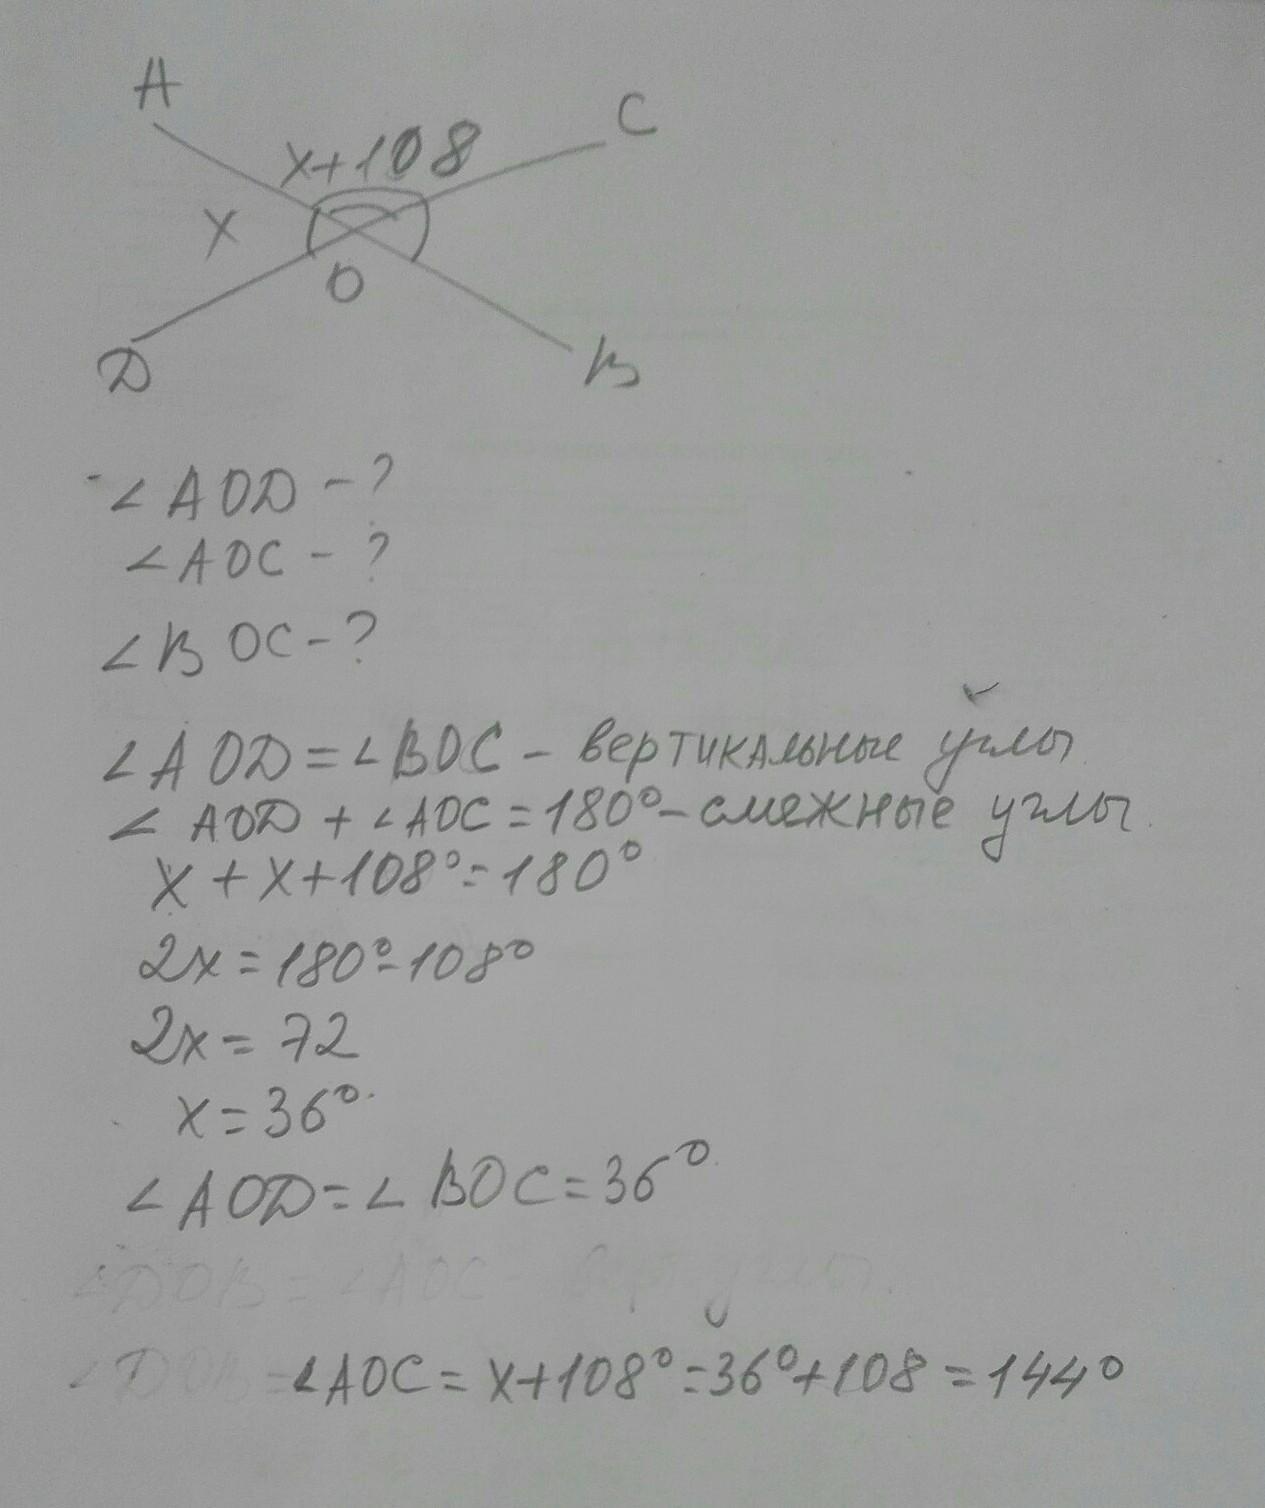 A
C
x+108
x
O
D
B
∠AOD - ?
∠AOC - ?
∠BOC - ?
∠AOD = ∠BOC - вертикальные углы
∠AOD + ∠AOC = 180° - смежные углы.
x + x + 108° = 180°
2x = 180° - 108°
2x = 72
x = 36°.
∠AOD = ∠BOC = 36°.
∠DOB = ∠AOC - верт углы.
∠DOB = ∠AOC = x+108° = 36°+108 = 144°